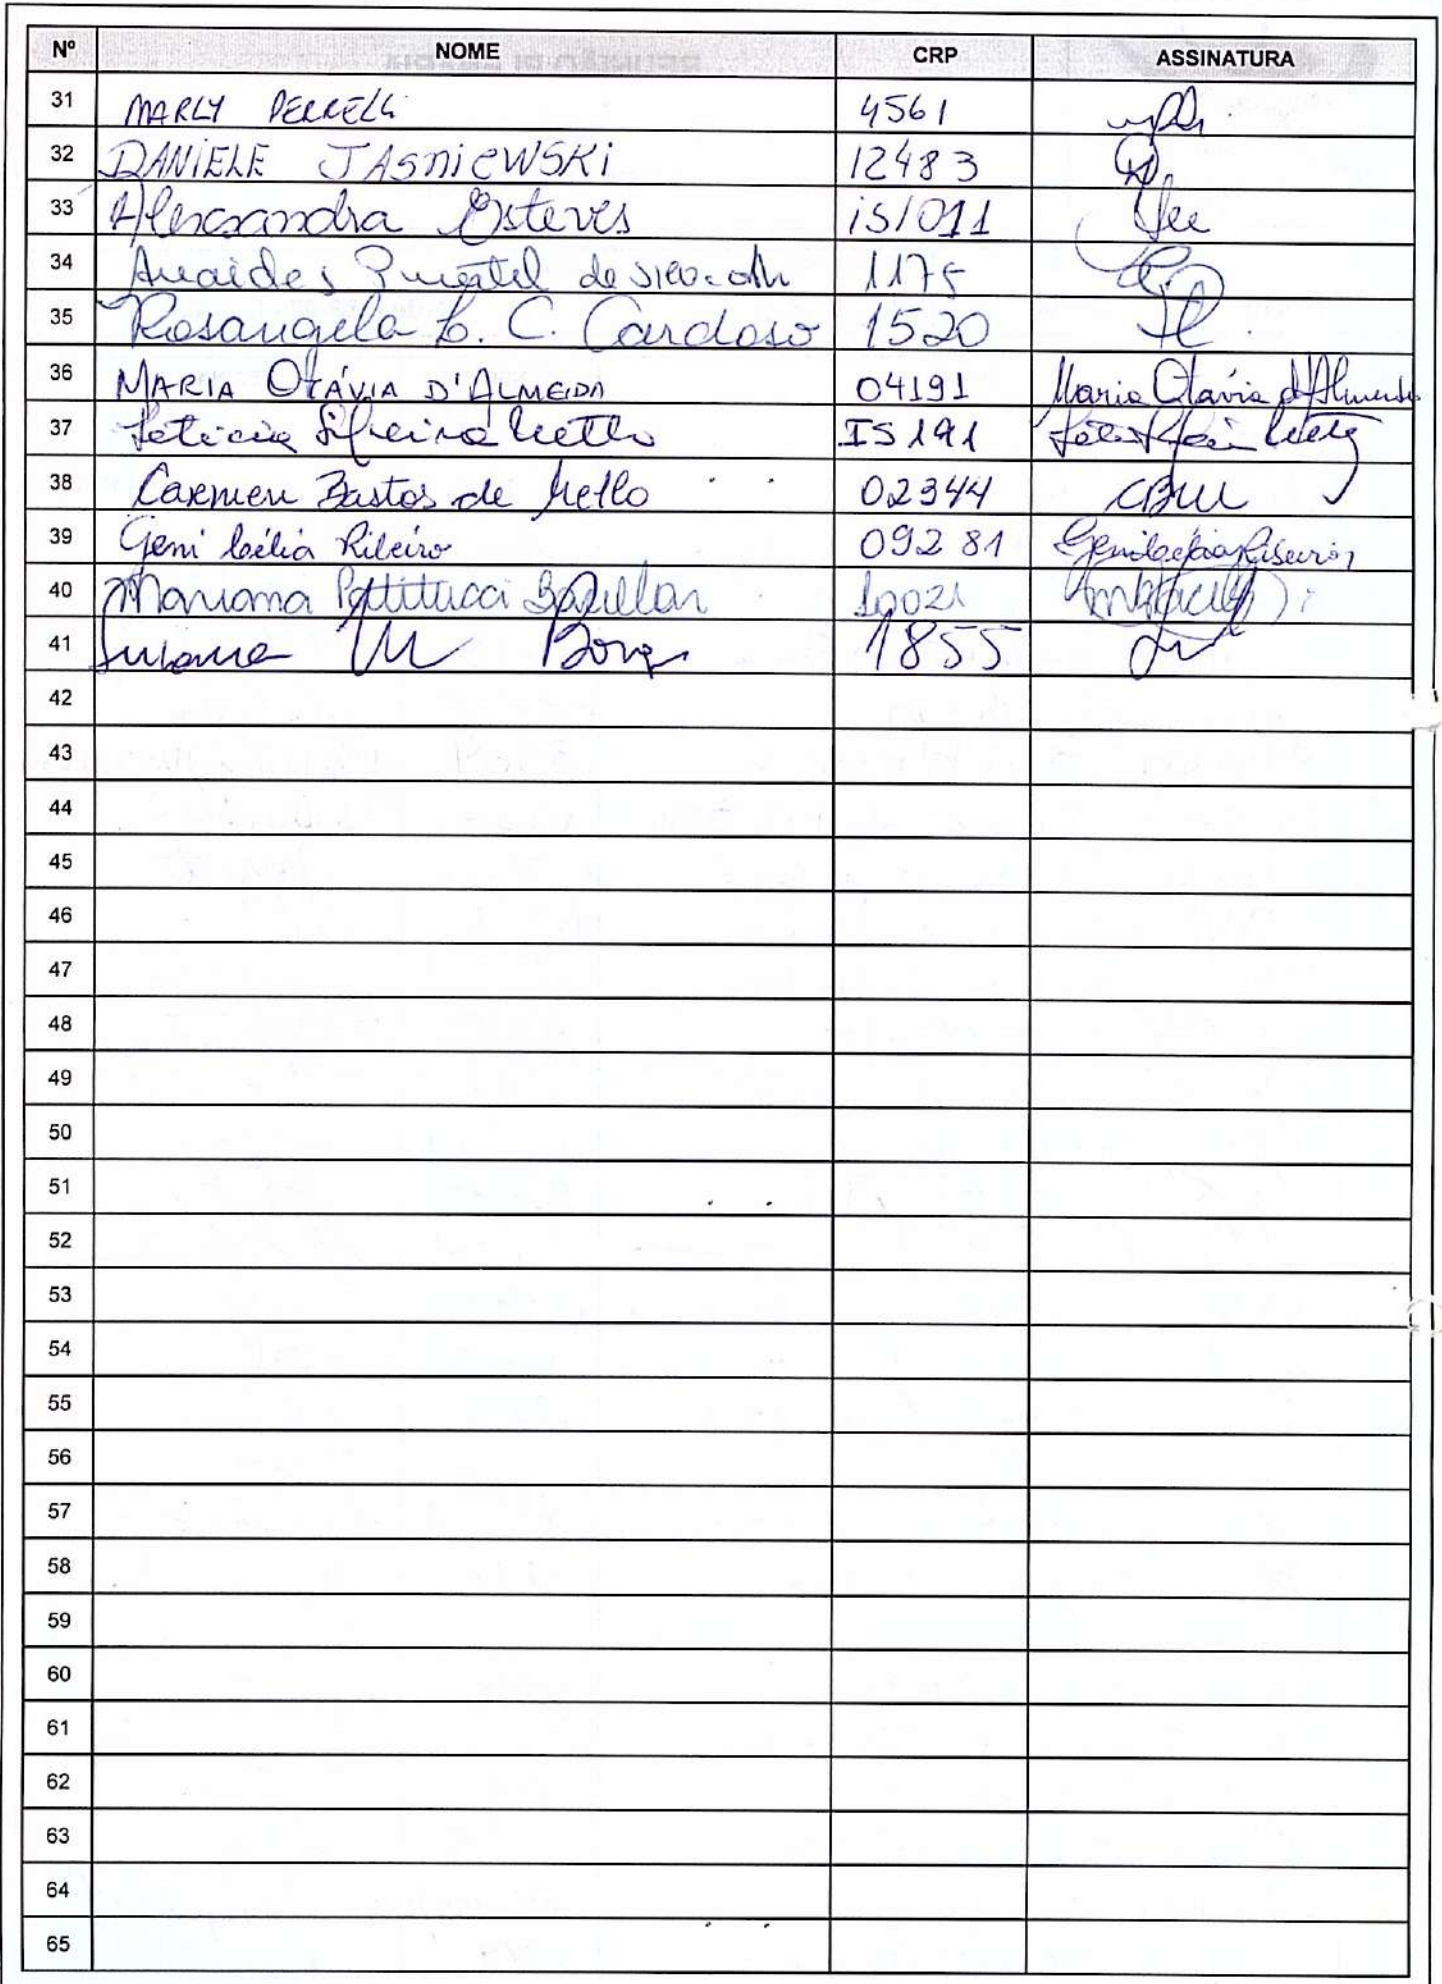 Nº NOME CRP ASSINATURA
31 MARLY PERRELLI 4561
32 DANIELE JASNIEWSKI 12483
33 Alessandra Esteves IS/011
34 1175
35 Rosangela L. C. Cardoso 1520
36 MARIA OTÁVIA D'ALMEIDA 04191 Maria Otávia d'Almeida
37 Letícia IS191
38 Carmen Bastos de Mello 02344 CBM
39 Geni Célia Ribeiro 09281 Geni Célia Ribeiro
40 Mariana Pattitucci 10021
41 1855
42
43
44
45
46
47
48
49
50
51
52
53
54
55
56
57
58
59
60
61
62
63
64
65